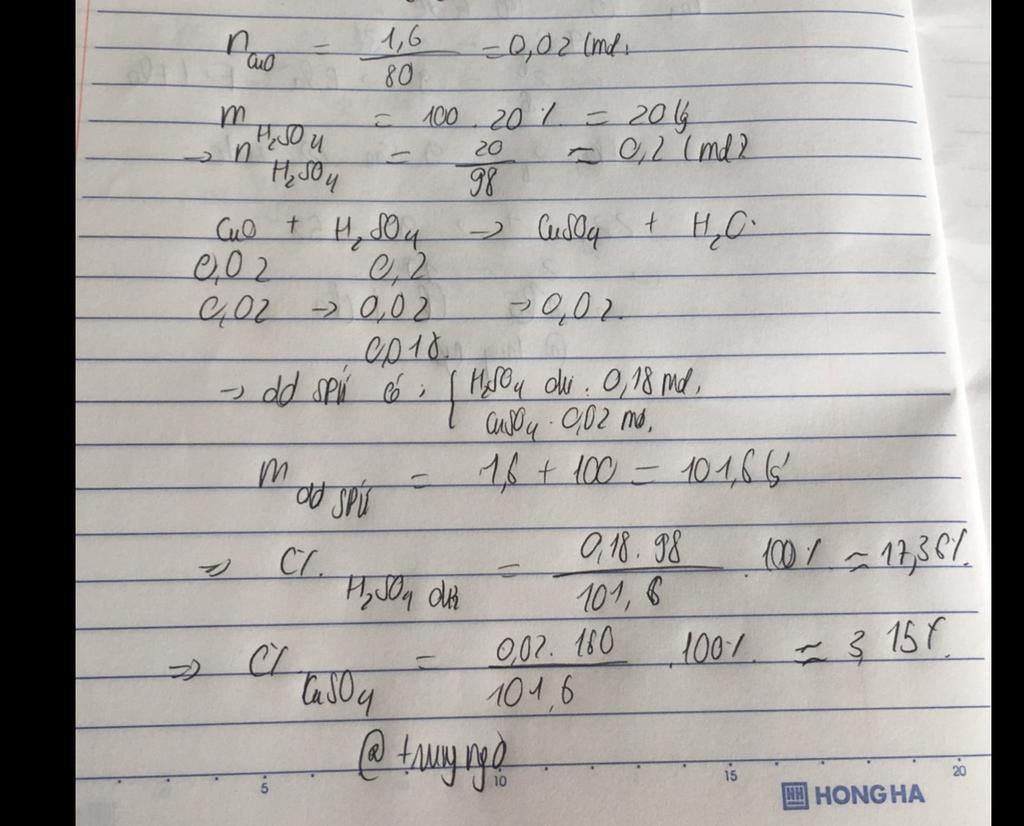 n CuO = 1,6/80 = 0,02 (mol)
m H₂SO₄ = 100 . 20% = 20 (g)
→ n H₂SO₄ = 20/98 ≈ 0,2 (mol)
CuO + H₂SO₄ → CuSO₄ + H₂O
0,02 0,2
0,02 → 0,02 → 0,02
0,018
→ dd spứ có : { H₂SO₄ dư : 0,18 mol
CuSO₄ : 0,02 mol
m dd spứ = 1,6 + 100 = 101,6 (g)
⇒ C% H₂SO₄ dư = 0,18 . 98/101,6 . 100% ≈ 17,36%
⇒ C% CuSO₄ = 0,02 . 160/101,6 . 100% ≈ 3,15%
5 10 15 20
HH HONG HA